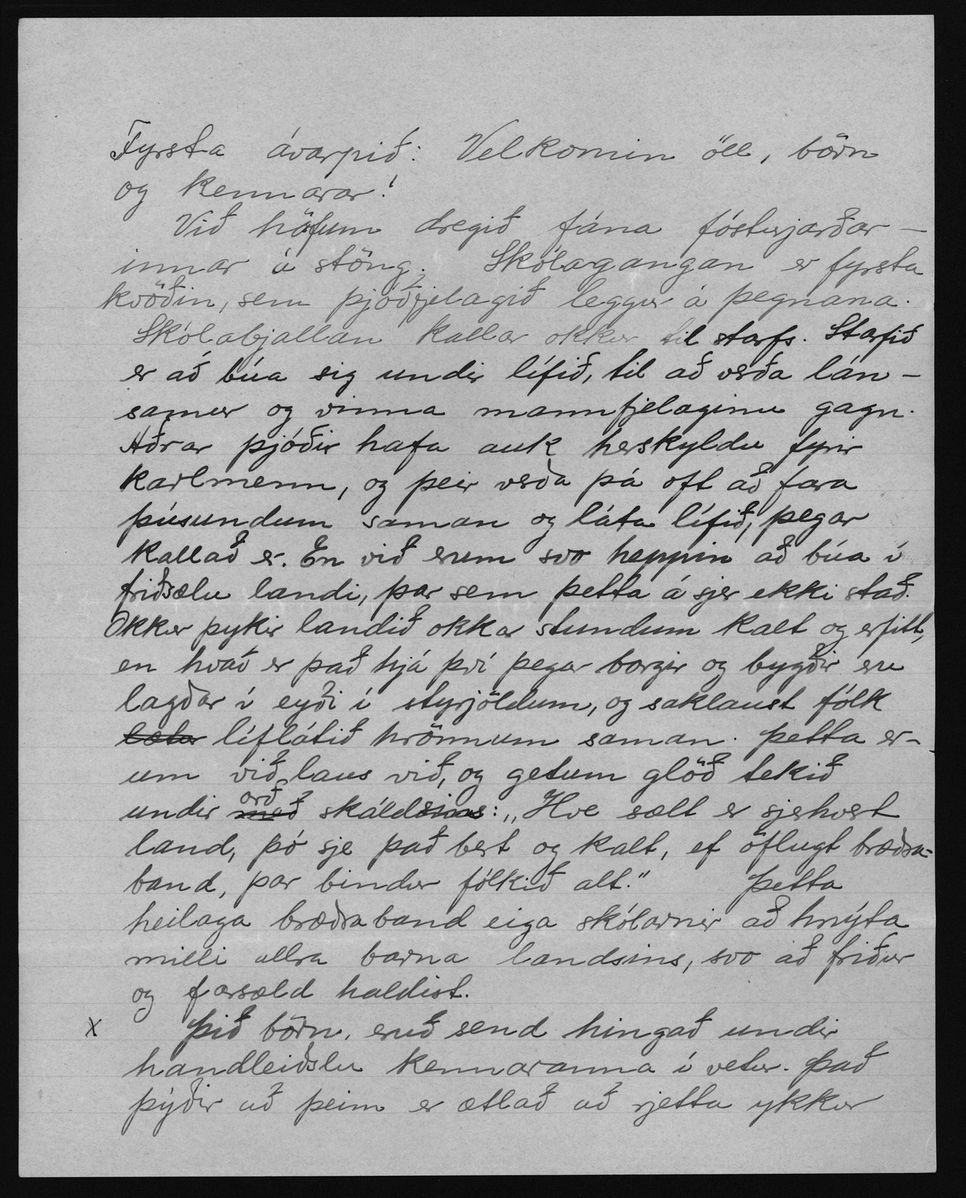 Fyrsta ávarpið: Velkomin öll, börn
og kennarar!
Við höfum dregið fána fósturjarðar-
innar á stöng. Skólagangan er fyrsta
kvöðin, sem þjóðfjelagið leggur á þegnana.
Skólabjallan kallar okkur til starfs. Starfið
er að búa sig undir lífið, til að verða lán-
samur og vinna mannfjelaginu gagn.
Aðrar þjóðir hafa auk herskyldu fyrir
karlmenn, og þeir verða þá oft að fara
þúsundum saman og láta lífið, þegar
kallað er. En við erum svo heppin að búa í
friðsælu landi, þar sem þetta á sjer ekki stað.
Okkur þykir landið okkar stundum kalt og erfitt,
en hvað er það hjá því þegar borgir og bygðir eru
lagðar í eyði í styrjöldum, og saklaust fólk
lætur líflátið hrönnum saman. Þetta er-
um við laus við, og getum glöð tekið
orð
undir með skáldsins: „Hve sælt er sjerhvert
land, þó sje það bert og kalt, ef öflugt bræðra-
band, þar bindur fólkið alt." Þetta
heilaga bræðraband eiga skólarnir að hnýta
milli allra barna landsins, svo að friður
og farsæld haldist.
x Þið börn, eruð send hingað undir
handleiðslu kennaranna í vetur. Það
þýðir að þeim er ætlað að rjetta ykkur